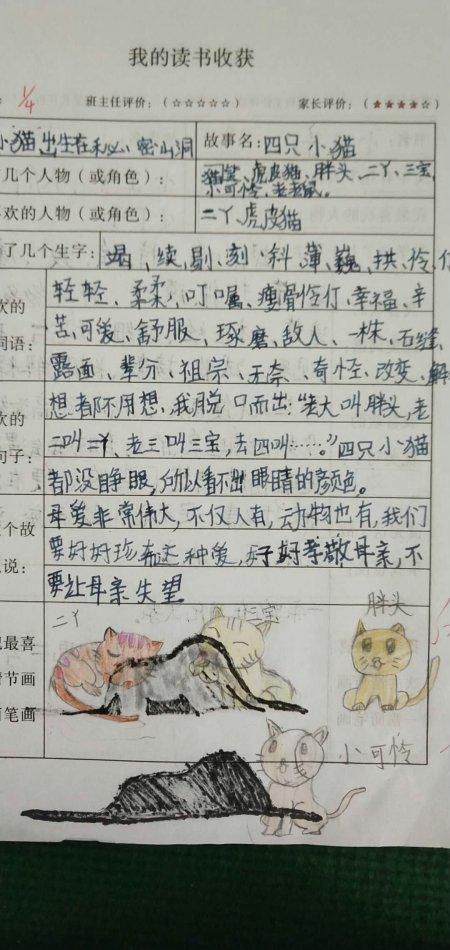 我的读书收获
1/4 班主任评价：（☆☆☆☆☆） 家长评价：（★★★★☆）
小猫出生在秘密山洞 故事名：四只小猫
几个人物（或角色）： 猫鼠、虎皮猫、胖头、二丫、三宝、
小可怜、老老鼠。
欢的人物（或角色）： 二丫、虎皮猫
了几个生字： 竭、续、剔、刻、斜、薄、巍、拱、伶、仃
欢的
词语：
轻轻、柔柔、叮嘱、瘦骨伶仃、幸福、辛
苦、可爱、舒服、琢磨、敌人、一株、石缝、
露面、辈分、祖宗、无奈、奇怪、改变、解
欢的
句子：
想都不用想，我脱口而出："老大叫胖头，老
二叫二丫、老三叫三宝，老四叫……。"四只小猫
都没睁眼，所以看不出眼睛的颜色。
个故
说：
母爱非常伟大，不仅人有，动物也有，我们
要好好珍惜这种爱，好好孝敬母亲，不
要让母亲失望
最喜
情节画
笔画
二丫
三宝
胖头
小可怜